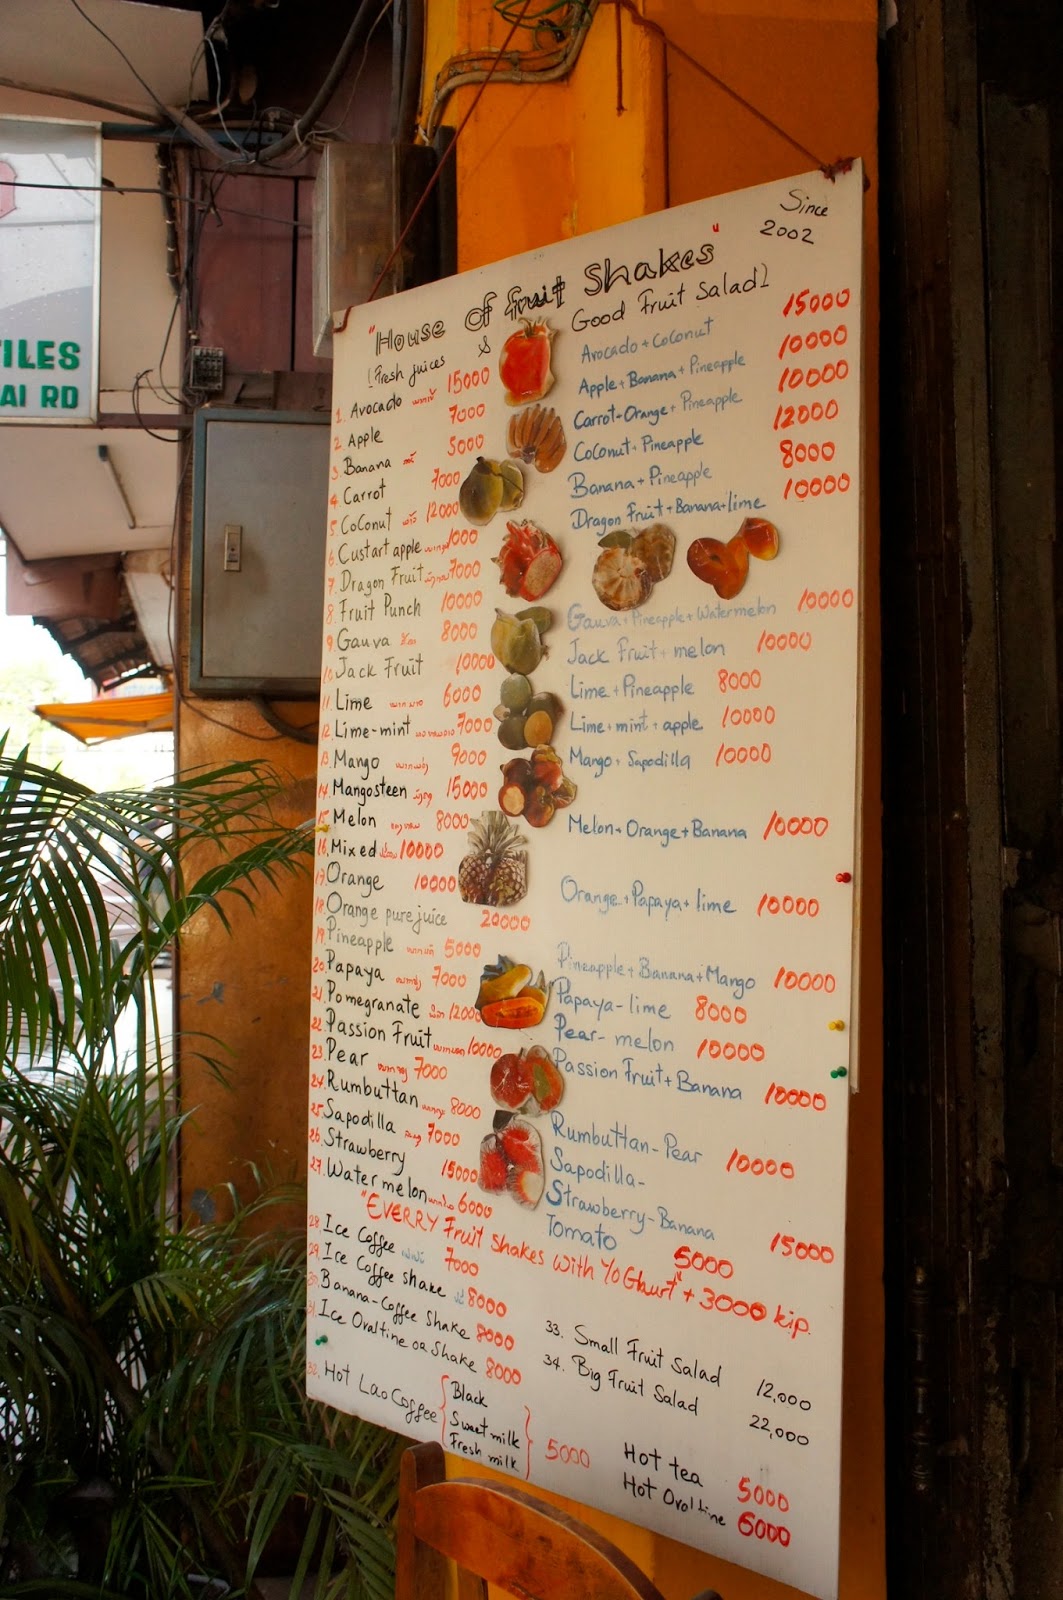 TILES
AI RD
Since
2002
"House of fruit Shakes"
! Fresh juices &
Good Fruit Salad!
1. Avocado 15000
2. Apple 7000
3. Banana 5000
4. Carrot 7000
5. CoConut 12000
6. Custart apple 1000
7. Dragon Fruit 7000
8. Fruit Punch 10000
9. Gauva 8000
10. Jack Fruit 10000
11. Lime 6000
12. Lime-mint 7000
13. Mango 9000
14. Mangosteen 15000
15. Melon 8000
16. Mixed 10000
17. Orange 10000
18. Orange pure juice 20000
19. Pineapple 5000
20. Papaya 7000
21. Pomegranate 12000
22. Passion Fruit 10000
23. Pear 7000
24. Rumbuttan 8000
25. Sapodilla 7000
26. Strawberry 15000
27. Water melon 6000
Avocado + Coconut 15000
Apple + Banana + Pineapple 10000
Carrot-Orange + Pineapple 10000
CoConut + Pineapple 12000
Banana + Pineapple 8000
Dragon Fruit + Banana + lime 10000
Gauva + Pineapple + Watermelon 10000
Jack Fruit + melon 10000
Lime + Pineapple 8000
Lime + mint + apple 10000
Mango + Sapodilla 10000
Melon + Orange + Banana 10000
Orange + Papaya + lime 10000
Pineapple + Banana + Mango 10000
Papaya - lime 8000
Pear - melon 10000
Passion Fruit + Banana 10000
Rumbuttan - Pear 10000
Sapodilla -
Strawberry - Banana 15000
Tomato 5000
"EVERRY Fruit Shakes with YoGhurt" + 3000 kip.
28. Ice Coffee 7000
29. Ice Coffee shake 8000
30. Banana-Coffee Shake 8000
31. Ice Ovaltine or Shake 8000
32. Hot Lao Coffee { Black
Sweet milk
Fresh milk } 5000
33. Small Fruit Salad 12,000
34. Big Fruit Salad 22,000
Hot tea 5000
Hot Ovaltine 6000